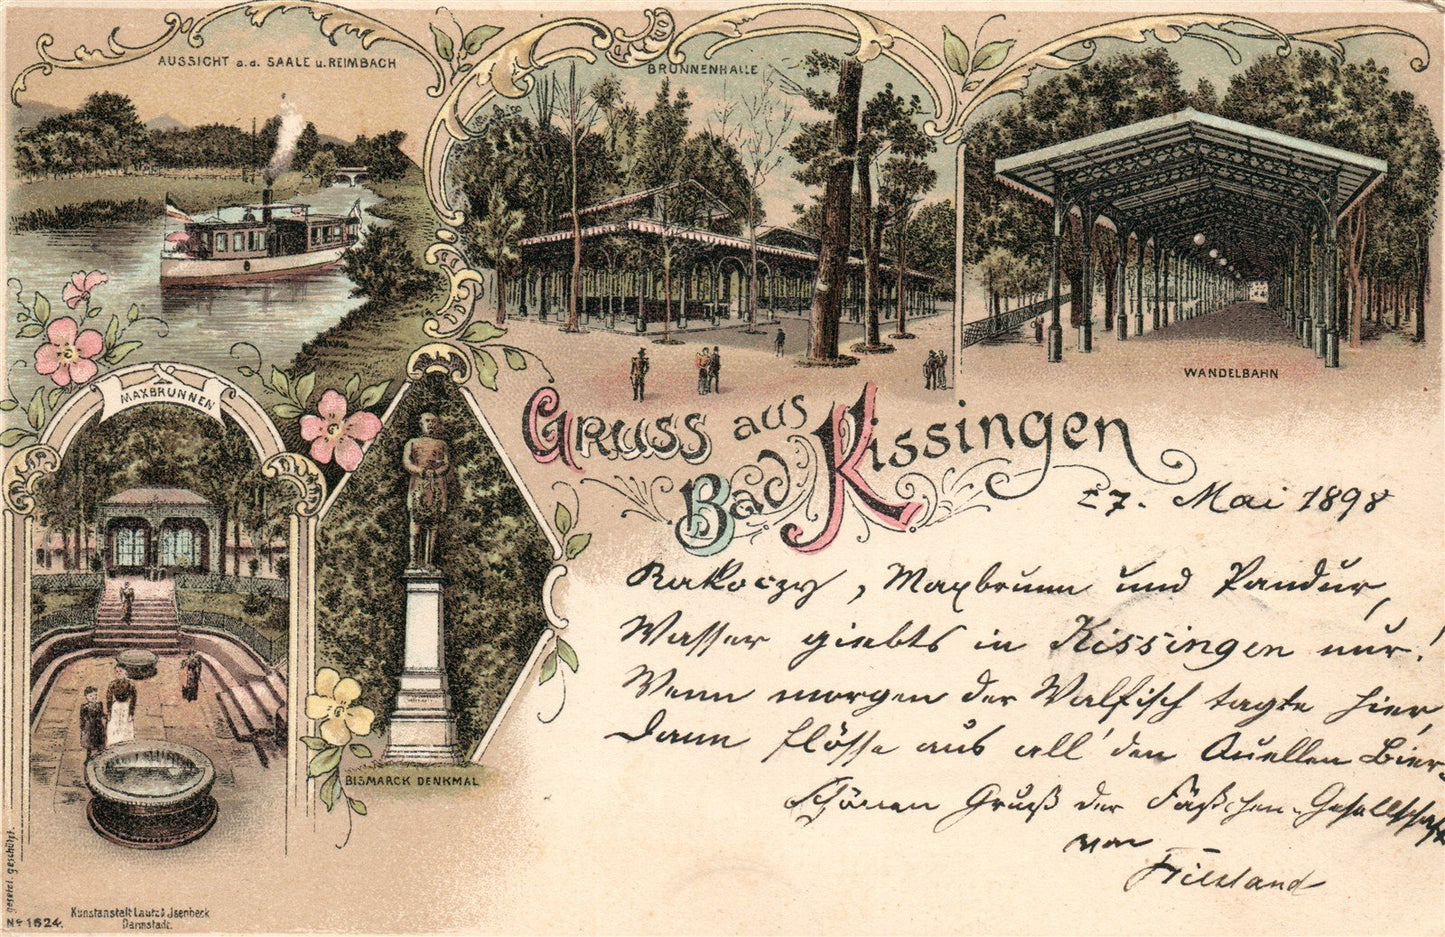 AUSSICHT a.d. SAALE u. REIMBACH
BRUNNENHALLE
WANDELBAHN
MAXBRUNNEN
BISMARCK DENKMAL
GRUSS aus
Bad Kissingen
27. Mai 1898
Rakoczy, Maxbrunn und Pandur,
Wasser giebts in Kissingen nur!
Wenn morgen der Walfisch tagte hier,
Dann flösse aus all' den Quellen Bier.
Schönen Gruß der Fäßchen-Gesellschaft
von
gesetzl. geschützt.
No 1624.
Kunstanstalt Lautz & Jsenbeck
Darmstadt.